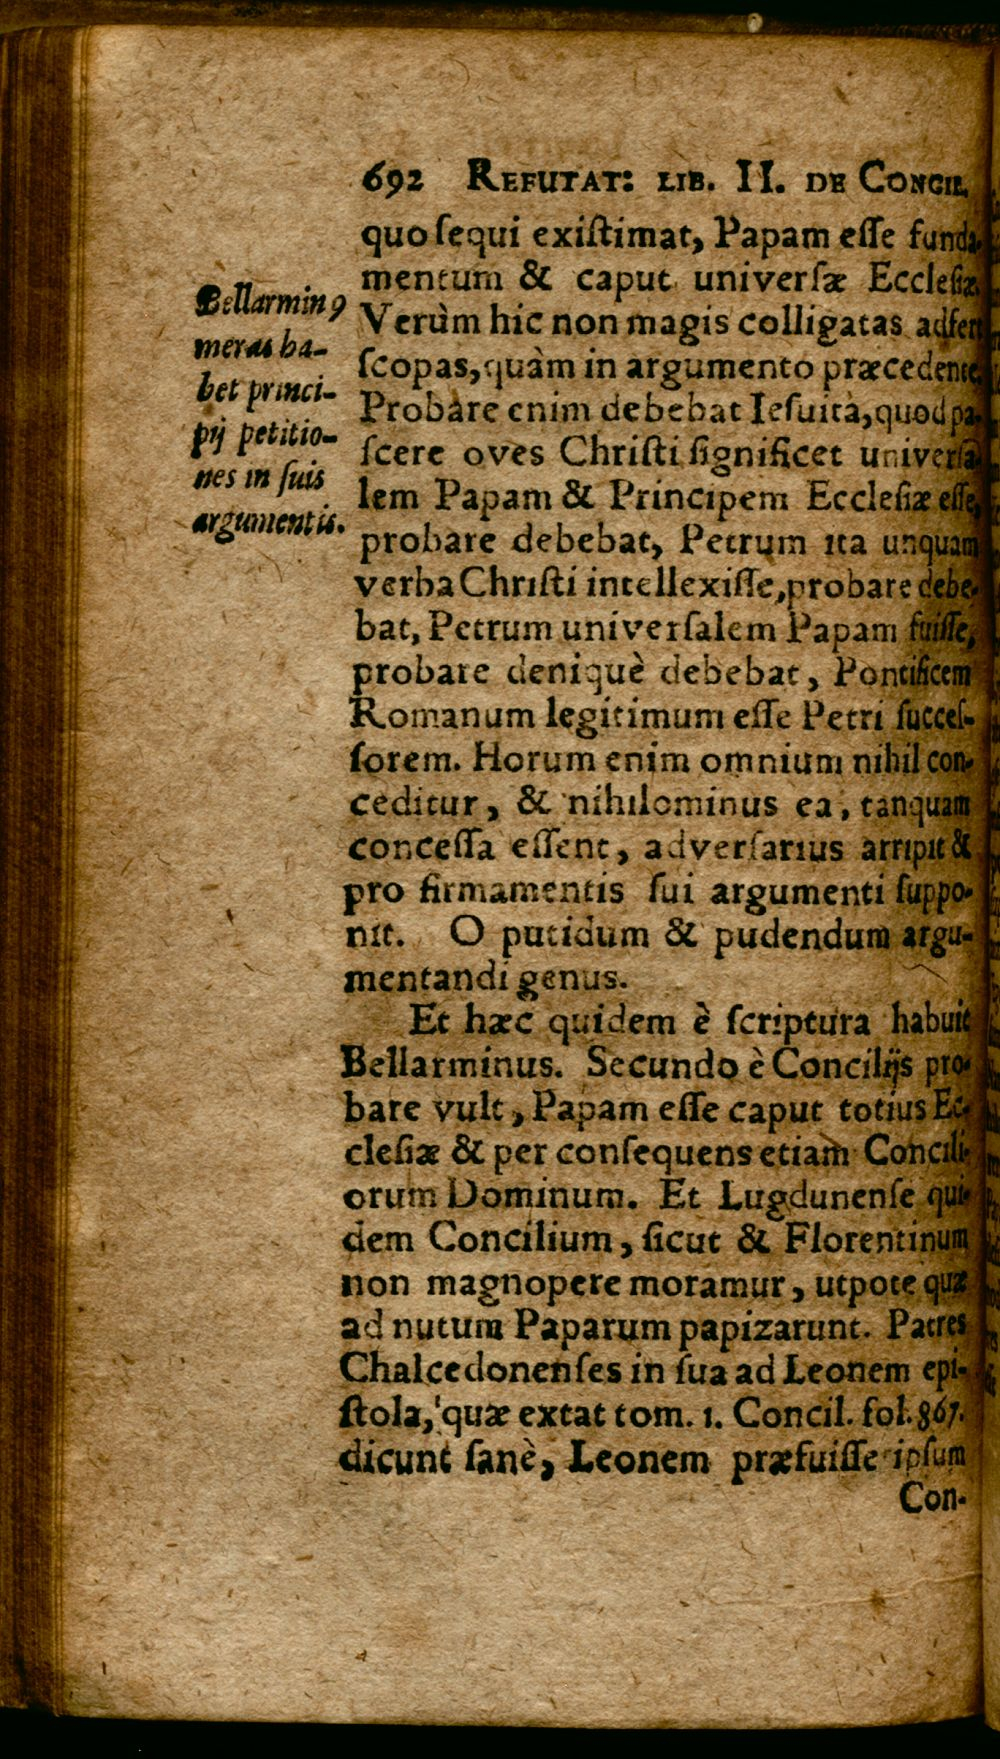 692 REFUTAT: LIB. II. DE CONCIL.
quo ſequi exiſtimat, Papam eſſe funda-
mentum & caput univerſæ Eccleſiæ.
Verùm hic non magis colligatas adfert
ſcopas, quàm in argumento præcedente.
Probare enim debebat Ieſuita, quod pa-
ſcere oves Chriſti ſignificet univerſa-
lem Papam & Principem Eccleſiæ eſſe,
probare debebat, Petrum ita unquam
verba Chriſti intellexiſſe, probare debe-
bat, Petrum univerſalem Papam fuiſſe,
probare deniquè debebat, Pontificem
Romanum legitimum eſſe Petri ſucceſ-
ſorem. Horum enim omnium nihil con-
ceditur, & nihilominus ea, tanquam
conceſſa eſſent, adverſarius arripit &
pro firmamentis ſui argumenti ſuppo-
nit. O putidum & pudendum argu-
mentandi genus.
Et hæc quidem è ſcriptura habuit
Bellarminus. Secundo è Concilijs pro-
bare vult, Papam eſſe caput totius Ec-
cleſiæ & per conſequens etiam Concili-
orum Dominum. Et Lugdunenſe qui-
dem Concilium, ſicut & Florentinum
non magnopere moramur, utpote quæ
ad nutum Paparum papizarunt. Patres
Chalcedonenſes in ſua ad Leonem epi-
ſtola, quæ extat tom. 1. Concil. fol. 867.
dicunt ſanè, Leonem præfuiſſe ipſum
Con-
Bellarminꝰ
meras ha-
bet princi-
pij petitio-
nes in ſuis
argumentis.